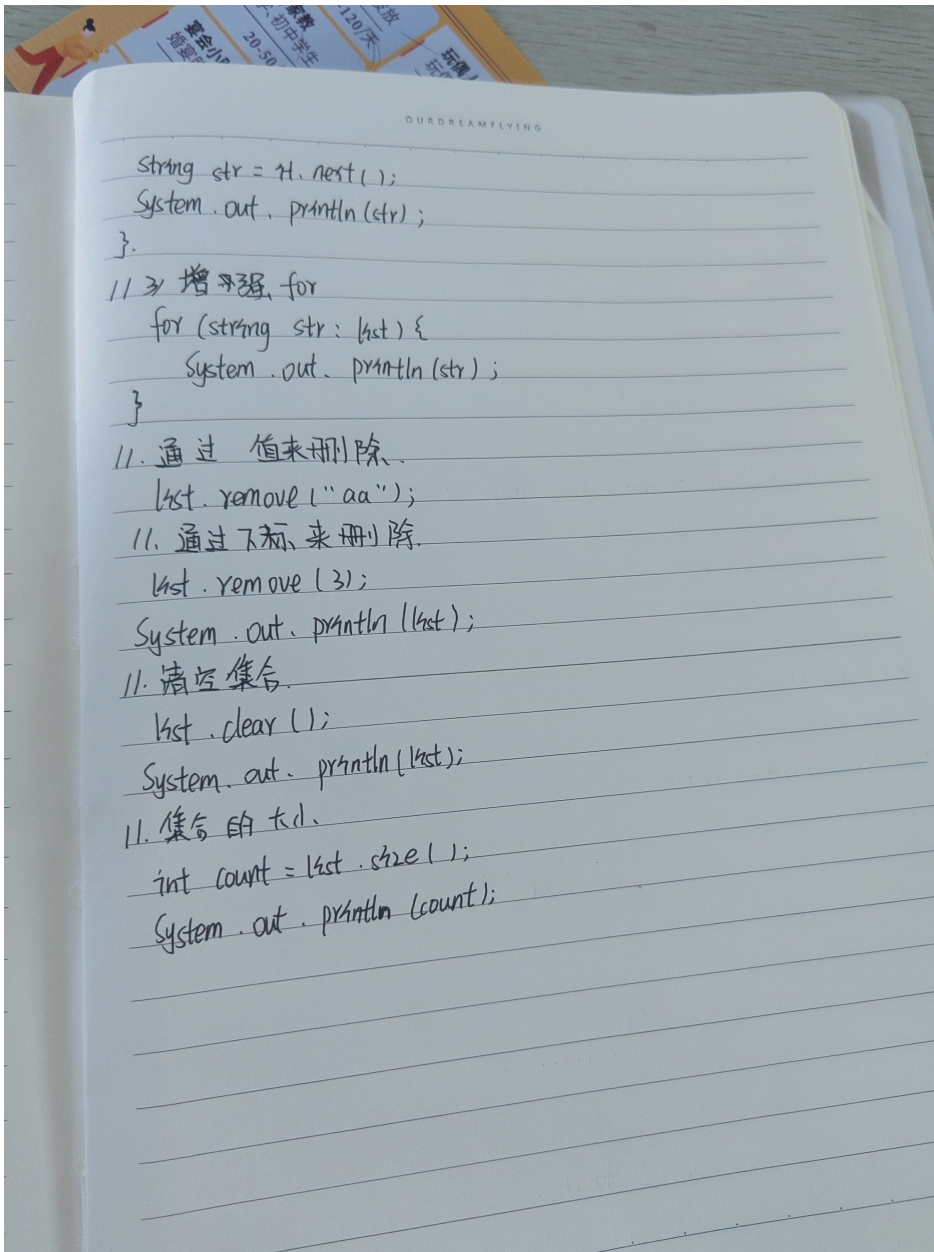 宴会小
婚宴
家教
初中学生
20-50
放
120/天
玩偶
玩
OURDREAMFLYING
String str = it.next();
System.out.println(str);
}.
// 3> 增强 for
for (string str : list) {
System.out.println(str);
}
//. 通过 值来删除.
list.remove("aa");
//. 通过下标、来删除.
list.remove(3);
System.out.println(list);
//. 清空集合.
list.clear();
System.out.println(list);
//. 集合的大小、
int count = list.size();
System.out.println(count);